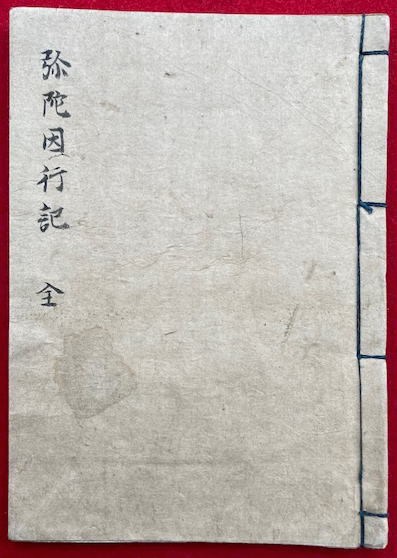 弥陀因行記 全